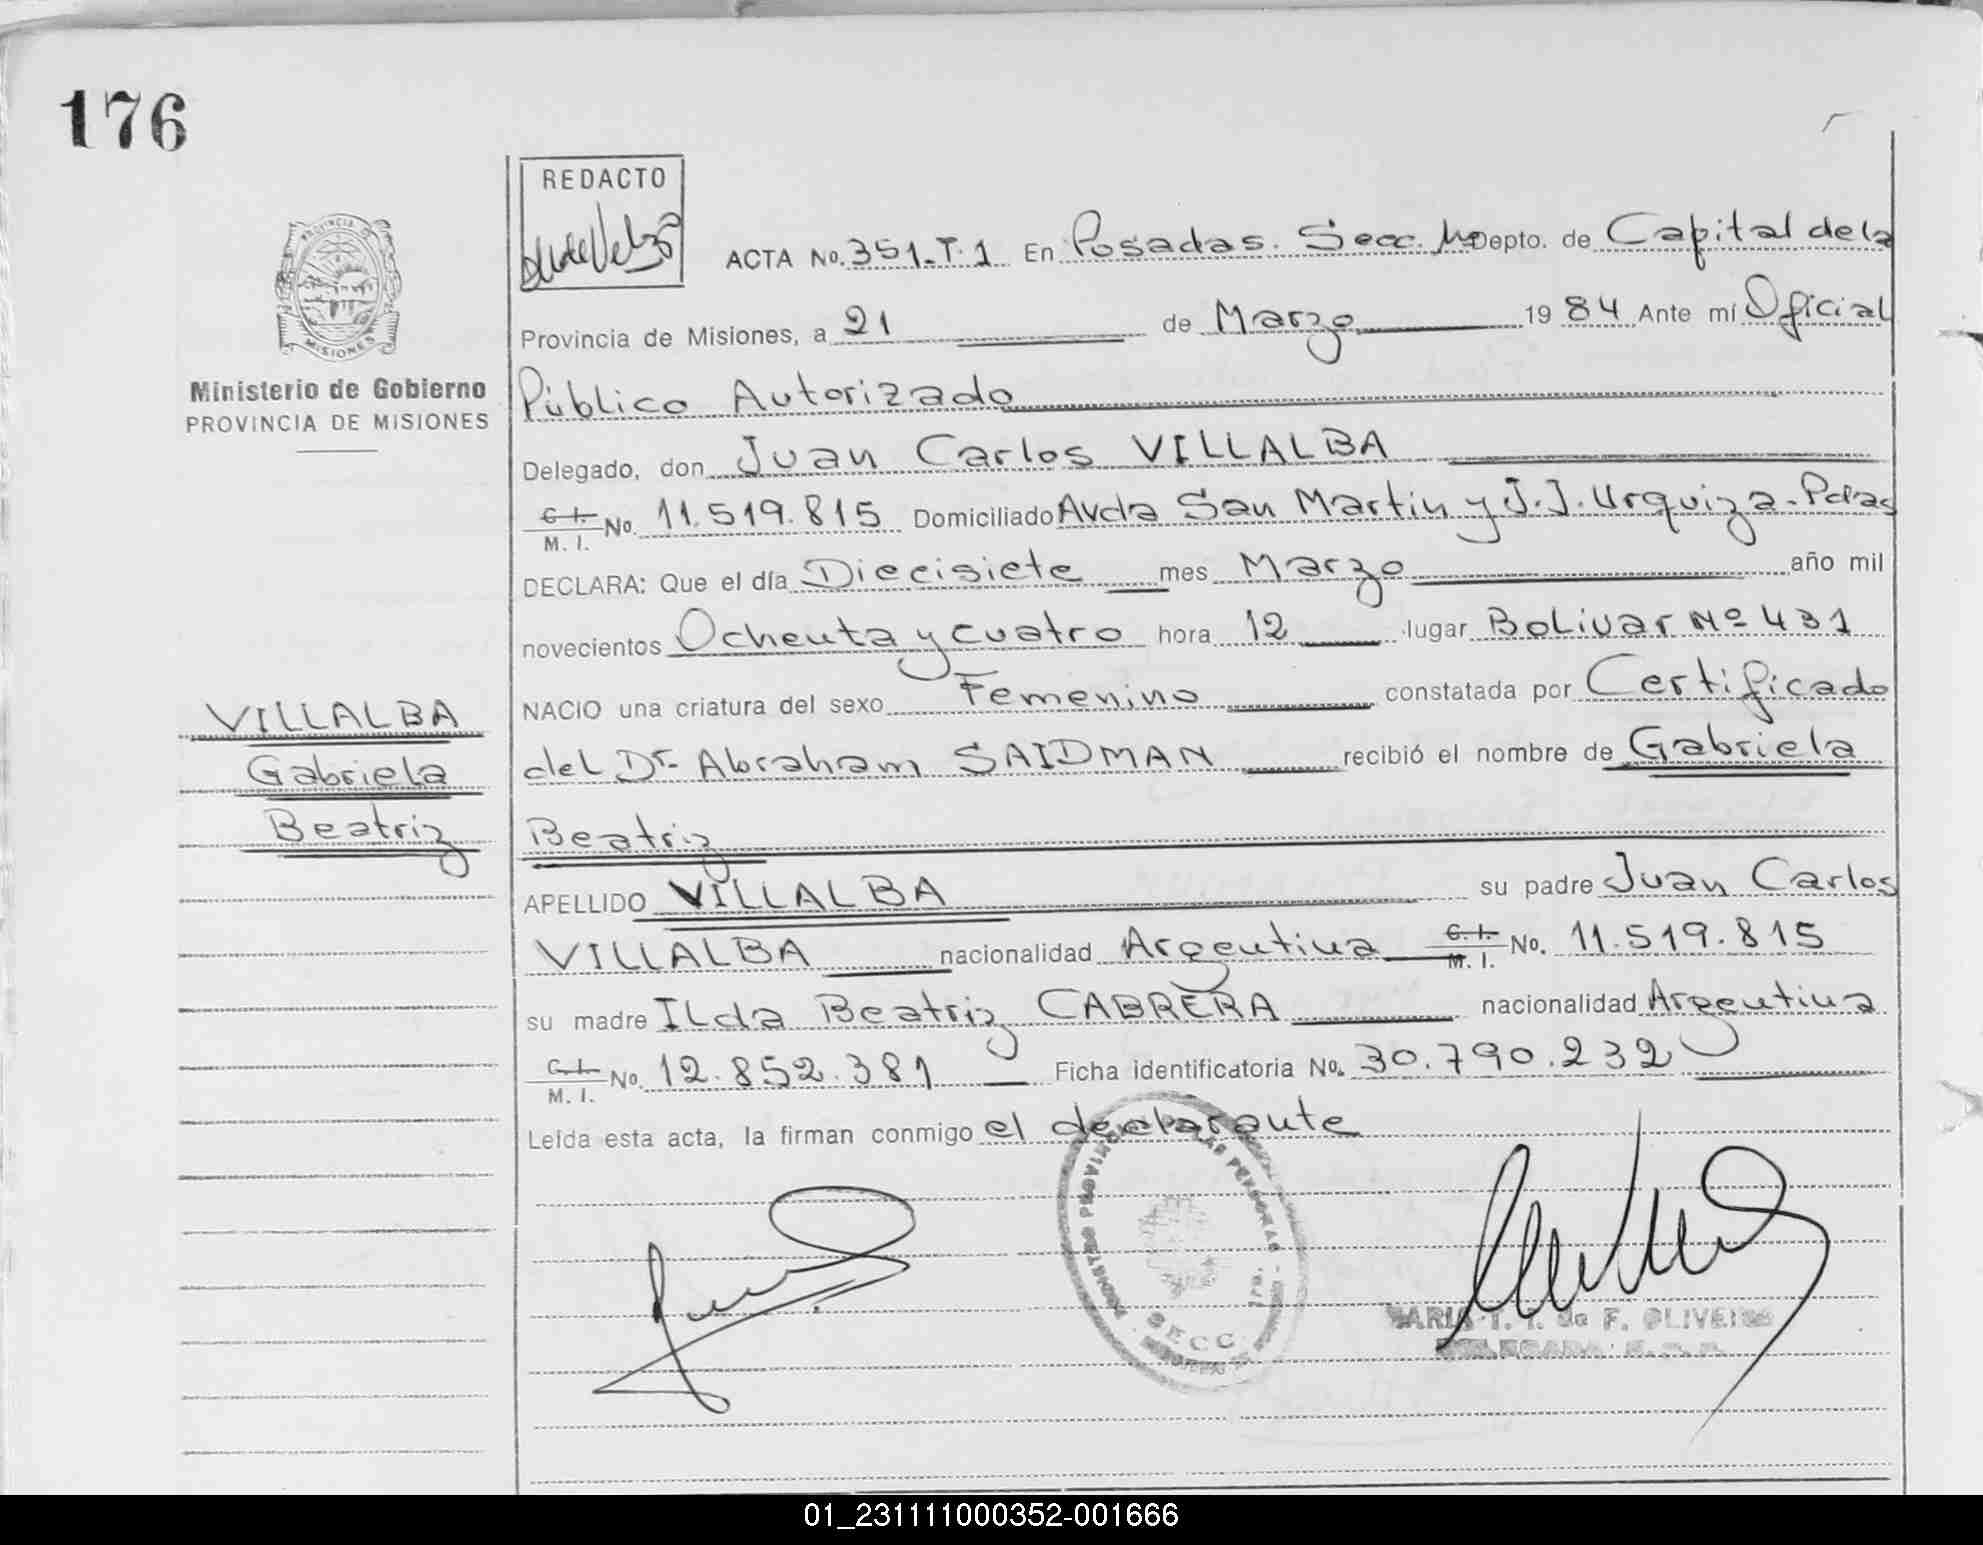 176
REDACTO
PROVINCIA DE
MISIONES
Ministerio de Gobierno
PROVINCIA DE MISIONES
ACTA No. 351-T.1 En Posadas. Secc. Depto. de Capital de la
Provincia de Misiones, a 21 de Marzo 1984 Ante mí Oficial
Público Autorizado
Delegado, don Juan Carlos VILLALBA
C. I. No. 11.519.815 Domiciliado Avda San Martin y J.J. Urquiza-Pdas
M. I.
DECLARA: Que el día Diecisiete mes Marzo año mil
novecientos Ochenta y cuatro hora 12 lugar Bolivar Nº 431
NACIO una criatura del sexo Femenino constatada por Certificado
del Dr. Abraham SAIDMAN recibió el nombre de Gabriela
Beatriz
APELLIDO VILLALBA su padre Juan Carlos
VILLALBA nacionalidad Argentina C. I. No. 11.519.815
M. I.
su madre Ilda Beatriz CABRERA nacionalidad Argentina
C. I. No. 12.852.381 Ficha identificatoria No. 30.790.232
M. I.
Leída esta acta, la firman conmigo el declarante
VILLALBA
Gabriela
Beatriz
SECC
MARIA T. T. de F. OLIVEIRA
DELEGADA
01_231111000352-001666